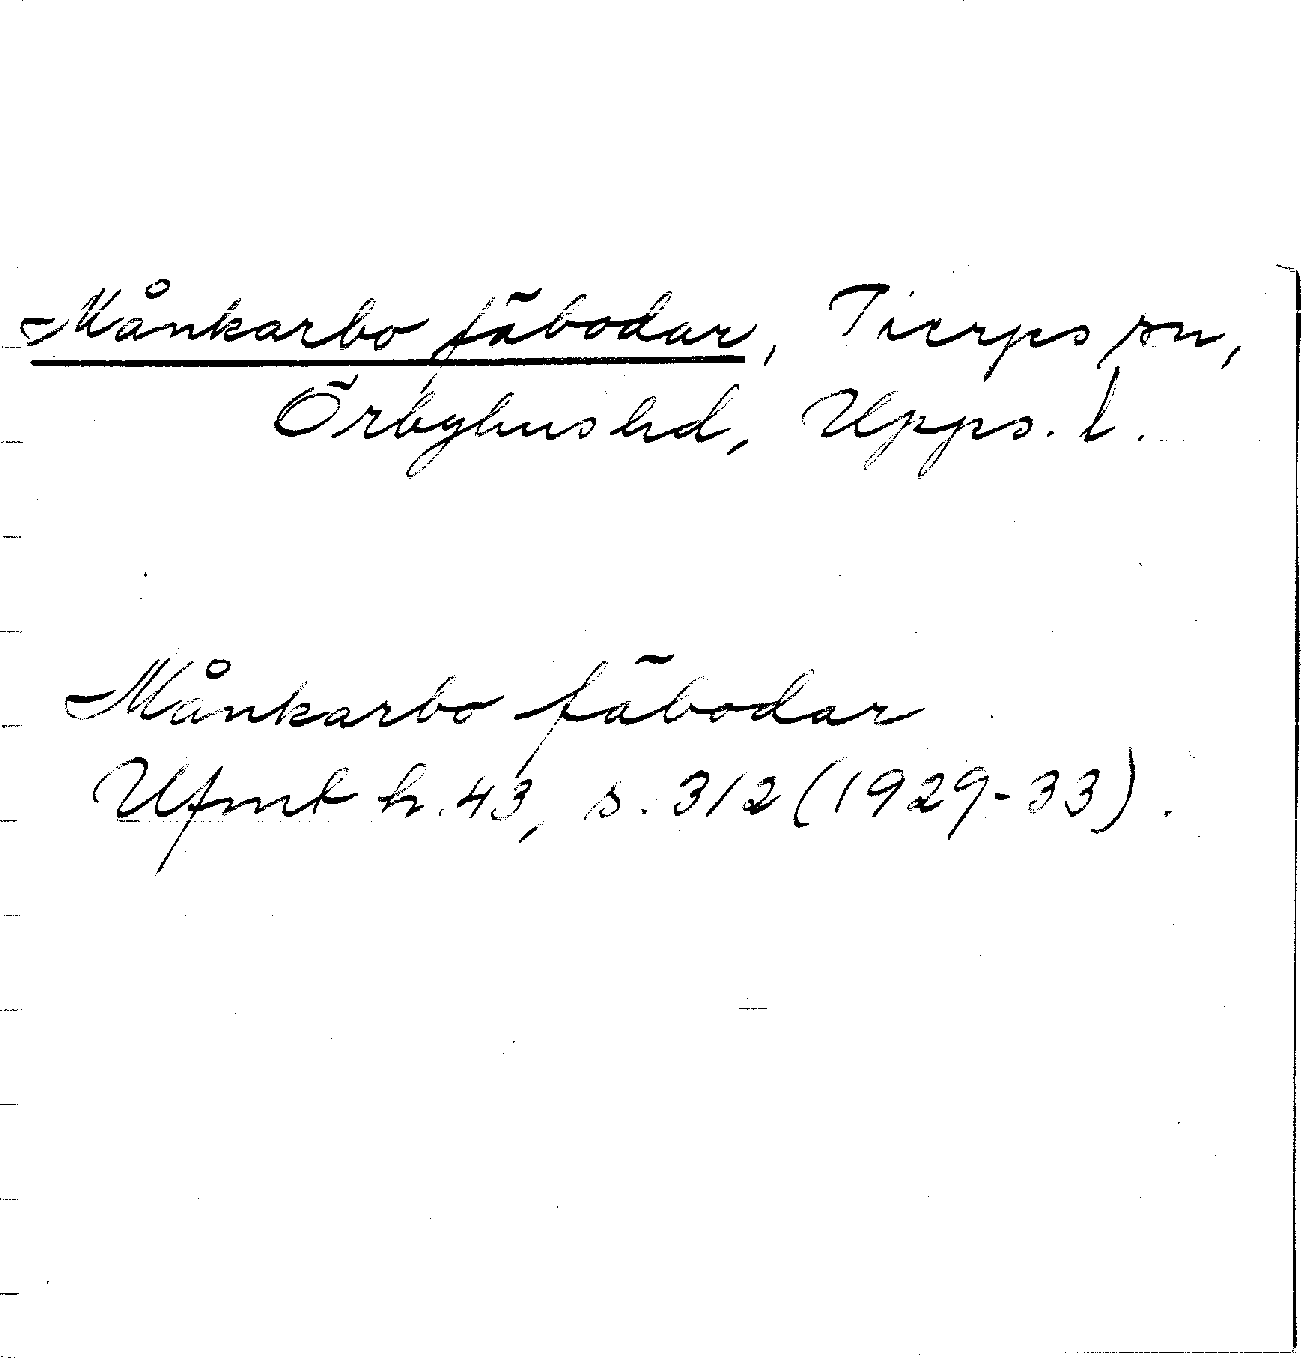 Månkarbo fäbodar, Tierps sn,
Örbyhus hd, Upps. l.
Månkarbo fäbodar
Ufmt h. 43, s. 312 (1929-33).